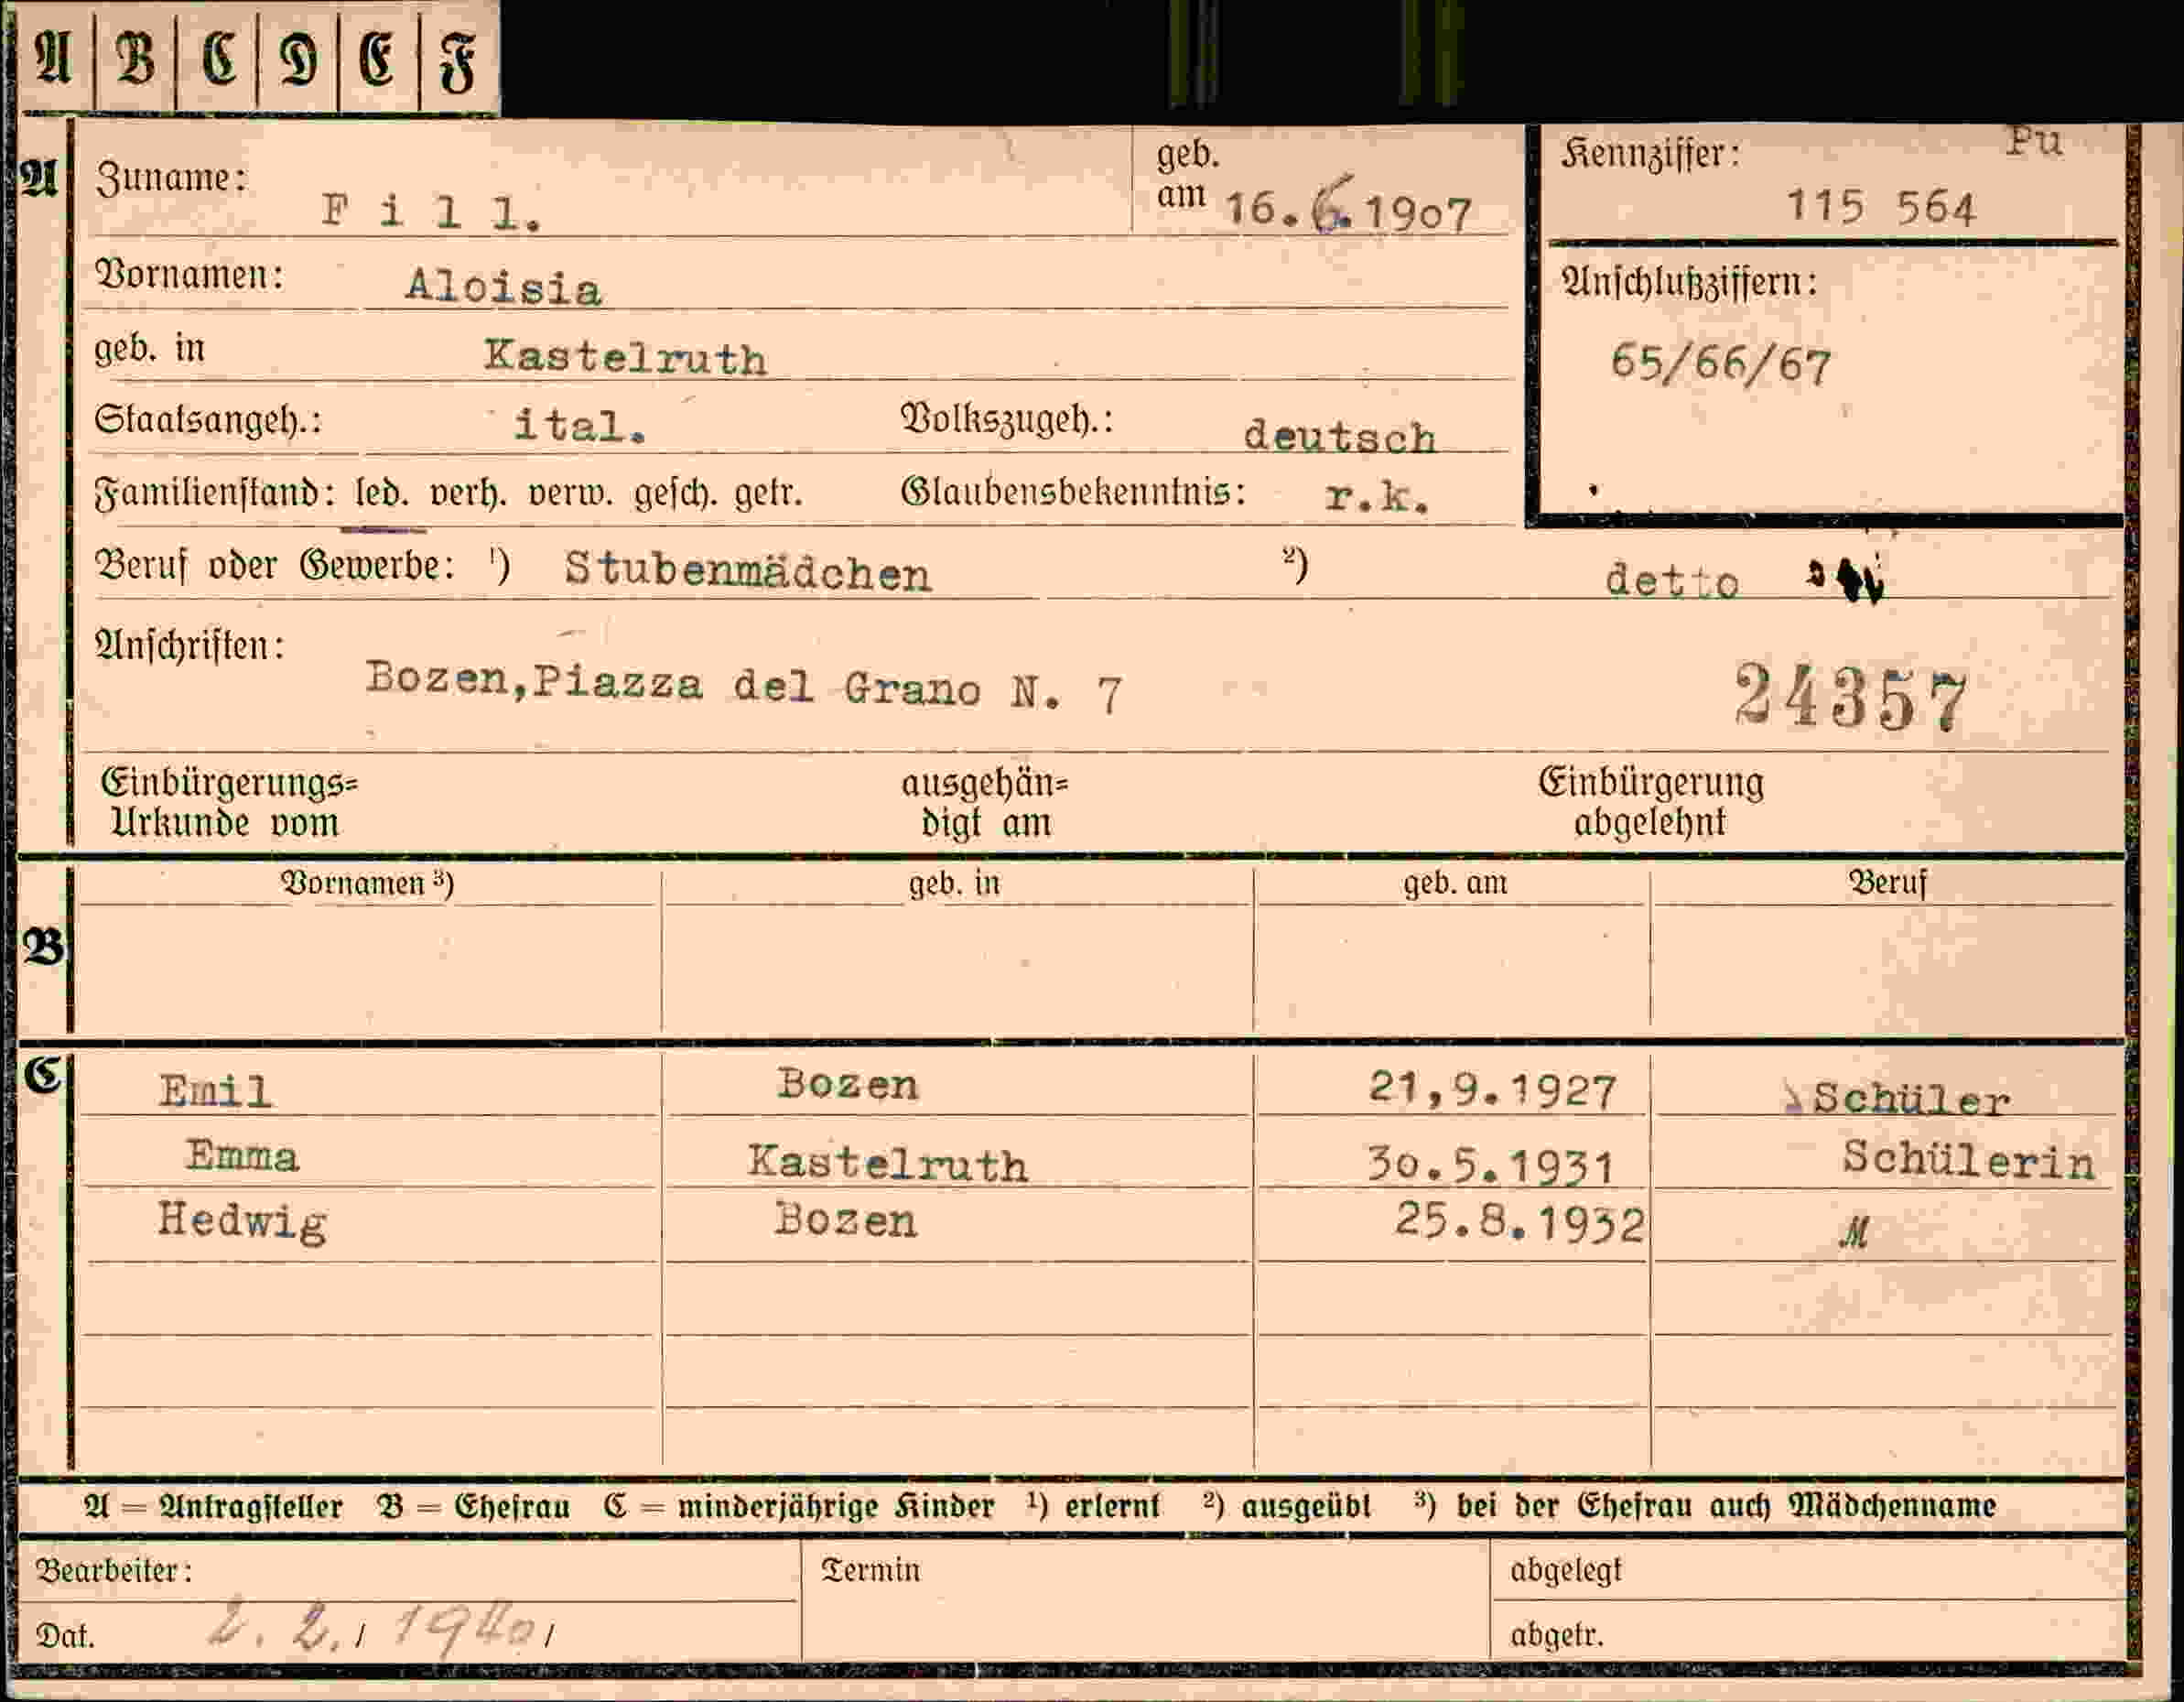 A B C D E F
A Zuname: Fill. geb. am 16.6.1907 Kennziffer: Pu
115 564
Vornamen: Aloisia Anschlußziffern:
geb. in Kastelruth 65/66/67
Staatsangeh.: ital. Volkszugeh.: deutsch
Familienstand: led. verh. verw. gesch. getr. Glaubensbekenntnis: r.k.
Beruf oder Gewerbe: ¹) Stubenmädchen ²) detto
Anschriften: Bozen,Piazza del Grano N. 7 24357
Einbürgerungs= ausgehän= Einbürgerung
Urkunde vom digt am abgelehnt
Vornamen ³) geb. in geb. am Beruf
B
C Emil Bozen 21,9.1927 Schüler
Emma Kastelruth 30.5.1931 Schülerin
Hedwig Bozen 25.8.1932 "
A = Antragsteller B = Ehefrau C = minderjährige Kinder ¹) erlernt ²) ausgeübt ³) bei der Ehefrau auch Mädchenname
Bearbeiter: Termin abgelegt
Dat. 2. 2./ 1940/ abgetr.